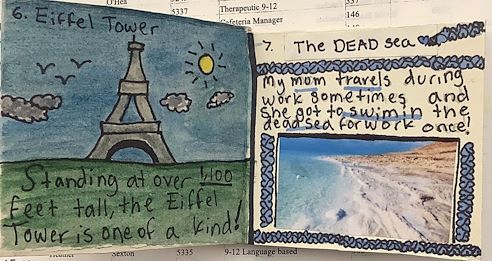 337
5337 Therapeutic 9-12
Cafeteria Manager 146
340
6. Eiffel Tower
Standing at over 1,100
feet tall, the Eiffel
Tower is one of a kind!
7. The DEAD sea
My mom travels during
work sometimes and
she got to swim in the
dead sea for work once!
Sexton 5335 9-12 Language based